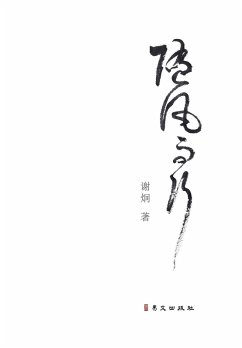 随风而行
谢炯 著
易文出版社